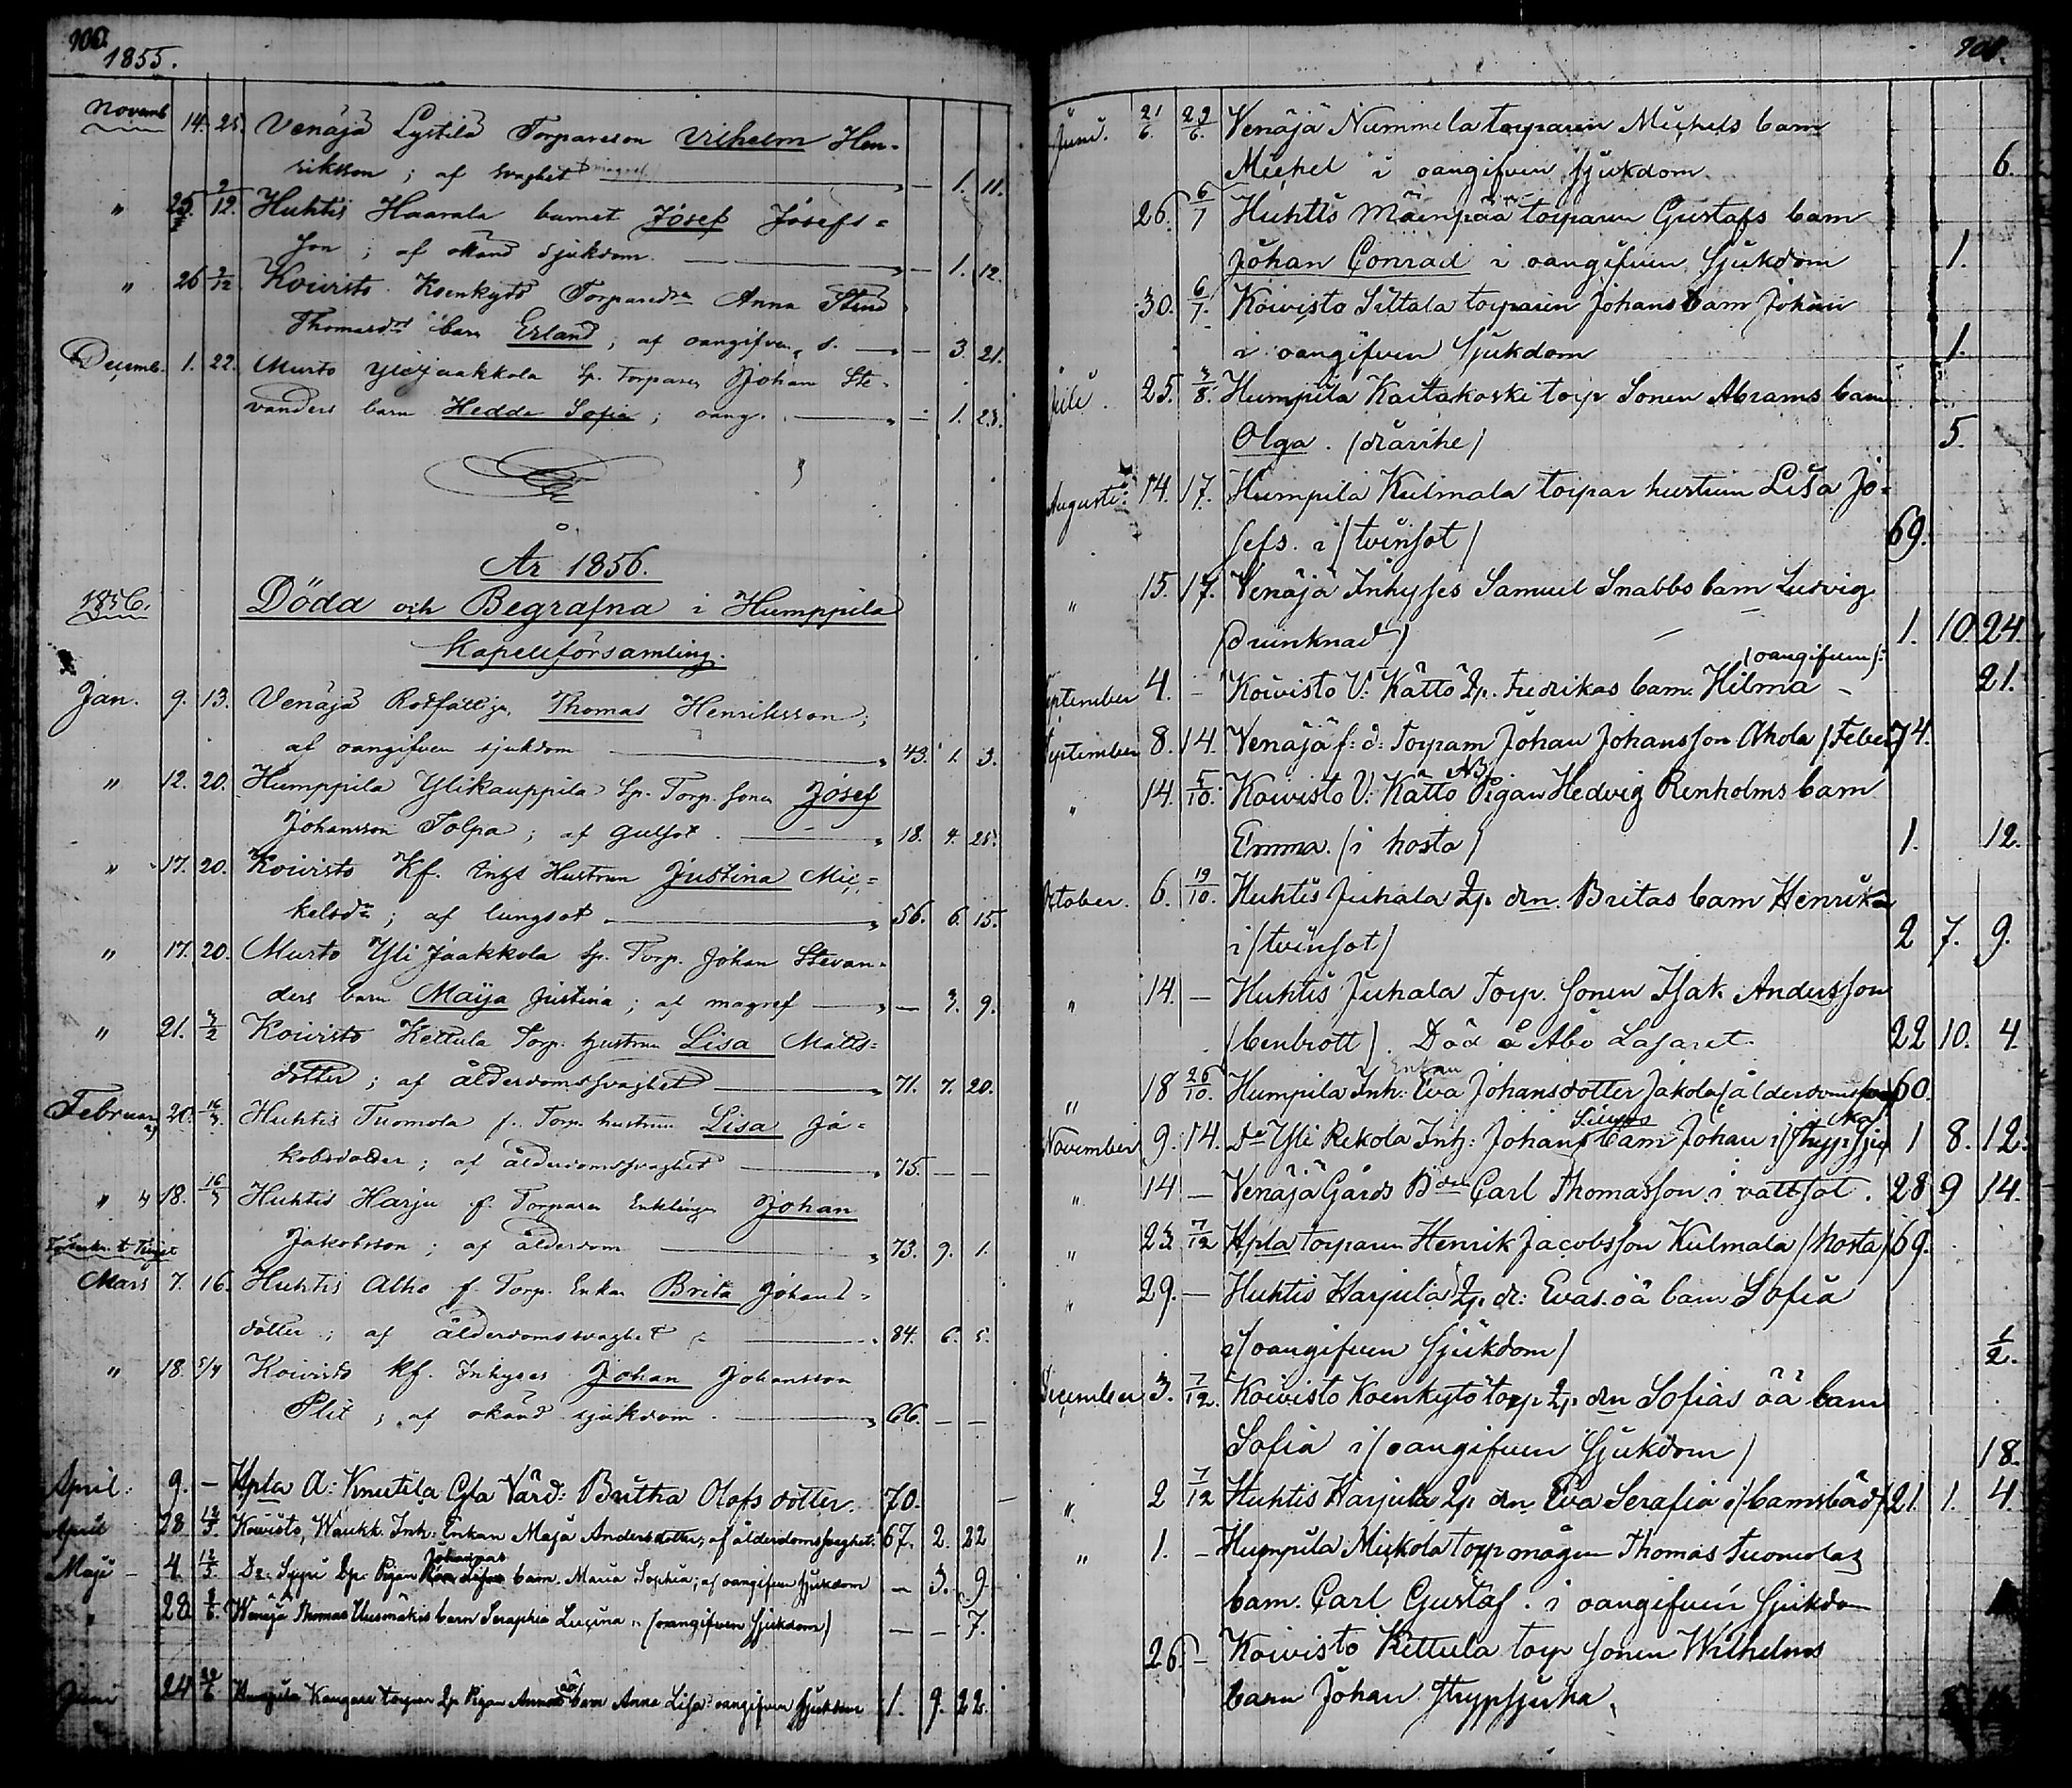 900.
1855.
Novemb 14. 25. Venäjä Lystilä Torpareson Vilhelm Hen-
riksson; af svaghet magref — 1. 11.
" 25. 2/12. Huhtis Haarala barnet Josef Josefs=
son; af okänd sjukdom. — 1. 12.
" 26 2/12 Koivisto Koenkytö Torparedrn Anna Stina
Thomasdr barn Erland; af oangifven s. — 3. 21.
Decemb. 1. 22. Murto Ylijaakkola Sp. Torparen Johan Ste-
vanders barn Hedda Sofia; oang. — 1. 23.
År 1856.
1856. Döda och Begrafna i Humppila
Kapellförsamling.
Jan. 9. 13. Venäjä Rotfattige Thomas Henriksson;
af oangifven sjukdom " 43. 1. 3.
" 12. 20. Humppila Ylikauppila Sp. Torp. sonen Josef
Johansson Tolpa; af gulsot. " 18. 4. 25.
" 17. 20. Koivisto Kf. Inhs Hustrun Justina Mic=
kelsdr; af lungsot " 56. 6. 15.
" 17. 20. Murto Yli Jaakkola Sp. Torp. Johan Stevan-
ders barn Maija Justina; af magref " — 3. 9.
" 21. 3/2 Koivisto Kettula Torp. hustrun Lisa Matts=
dotter; af ålderdomssvaghet " 71. 7. 20.
Februari 20. 16/3 Huhtis Tuomola f. Torp. hustrun Lisa Ja=
kobsdotter; af ålderdomssvaghet " 75. — —
" 18. 16/3 Huhtis Harju f. Torparen Enklingen Johan
Jakobsson; af ålderdom " 73. 9. 1.
Mars 7. 16. Huhtis Alho f. Torp. Enkan Brita Johans-
dotter; af ålderdomssvaghet " 84. 6. 5.
" 18. 5/4 Koivisto Kf. Inhyses Johan Johansson
Plit; af okänd sjukdom. " 66. — —
April. 9. — Hpla A: Knutila Gla Värd: Britha Olofs dotter. 70. —
April 28 12/5. Koivisto, Waukk. Inh: Enkan Maja Andersdotter; af ålderdomssvaghet. 67. 2. 22
Johannas
Maji — 4. 12/5. Do Sypi Sp. Pigan barn Maria Sophia; af oangifven sjukdom — 3. 9.
" 28. 8/6. Wenäjä Thomas Uusmäkis barn Seraphia Lucina (oangifven sjukdom) — — 7.
Juni 24 29/6 Humpila Kangare torpar Sp Pigan Annas oä barn Anna Lisa oangifven sjukdom 1. 9. 22.
901.
Juni. 21/6. 29/6. Venäjä Nummela torparen Michels barn
Michel i oangifven sjukdom 6.
26. 6/7 Huhtis Mäenpää torparen Gustafs barn
Johan Conrad i oangifven sjukdom 1.
30. 6/7. Koivisto Sittala torparen Johans barn Johan
i oangifven sjukdom 1.
Juli. 25. 3/8. Humpila Kaitakoski torp Sonen Abrams barn
Olga. (diarrhe) 5.
Augusti: 14. 17. Humpila Kulmala torpar hustrun Lisa Jo=
sefs. i (tvinsot) 69.
" 15. 17. Venäjä Inhyses Samuel Snabbs barn Ludvig
(drunknad) 1. 10 24.
(oangifven):
September 4. — Koivisto V: Kätto Sp. Fredrikas barn Hilma — 21.
September 8. 14. Venäjä f: d: Torparn Johan Johansson Ahola (Feber) 74.
" 14. 5/10. Koivisto V: Kätto Pigan Hedvig Renholms barn
Emma. (i hosta) 1. 12.
October. 6. 19/10. Huhtis Juhala Sp. drn. Britas barn Henrika
i (tvinsot) 2 7. 9.
" 14. — Huhtis Juhala Torp. sonen Isak Andersson
(benbrott). Död å Åbo Lasaret. 22 10. 4.
Enkan
" 18 26/10. Humpila Inh: Eva Johansdotter Jakola (ålderdomssvag) 60.
November 9. 14. Do Yli Rekola Inh: Johan Sjunds barn Johan i (strypsju ka) 1 8. 12.
" 14 — Venäjä Gårds Bdn Carl Thomasson i vattsot. 28 9 14.
" 23. 7/12 Hpla torparen Henrik Jacobsson Kulmala (hosta) 69.
" 29. — Huhtis Harjula Sp. dr: Evas oä barn Sofia
i (oangifven sjukdom) 1/2.
December 3. 7/12. Koivisto Koenkytö torp Sp drn Sofias oä barn
Sofia i (oangifven sjukdom) 18.
" 2 7/12 Huhtis Harjula Sp drn Eva Serafia i (barnsbörd) 21. 1. 4.
" 1. — Humpila Mickola torp mågen Thomas Tuomolas
barn Carl Gustaf. i oangifven sjukdom
26. — Koivisto Kettula torp sonen Wilhelms
barn Johan strypsjuka.